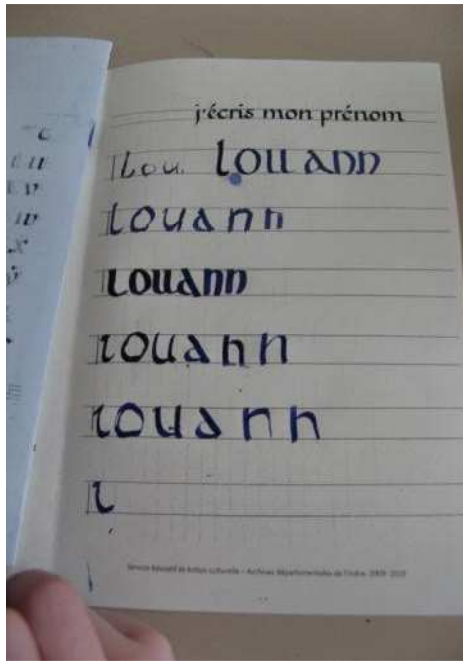 j'écris mon prénom
Lou. Louann
Louann
Louann
Louann
Louann
L
Service éducatif et Action culturelle - Archives départementales de l'Indre, 2009-2010